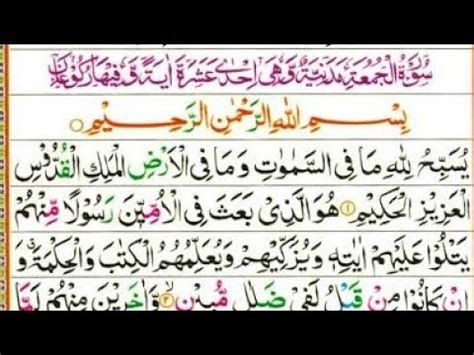 سُوْرَةُ الْجُمُعَةِ مَدَنِيَّةٌ وَّهِيَ اِحْدٰى عَشَرَةَ اٰيَةً وَّفِيْهَا رُكُوْعَانِ
بِسْمِ اللّٰهِ الرَّحْمٰنِ الرَّحِيْمِ
يُسَبِّحُ لِلّٰهِ مَا فِى السَّمٰوٰتِ وَمَا فِى الْاَرْضِ الْمَلِكِ الْقُدُّوْسِ
الْعَزِيْزِ الْحَكِيْمِ ۝۱ هُوَ الَّذِيْ بَعَثَ فِى الْاُمِّيّٖنَ رَسُوْلًا مِّنْهُمْ
يَتْلُوْا عَلَيْهِمْ اٰيٰتِهٖ وَيُزَكِّيْهِمْ وَيُعَلِّمُهُمُ الْكِتٰبَ وَالْحِكْمَةَ ۗ وَ
اِنْ كَانُوْا مِنْ قَبْلُ لَفِيْ ضَلٰلٍ مُّبِيْنٍ ۝۲ وَّاٰخَرِيْنَ مِنْهُمْ لَمَّا